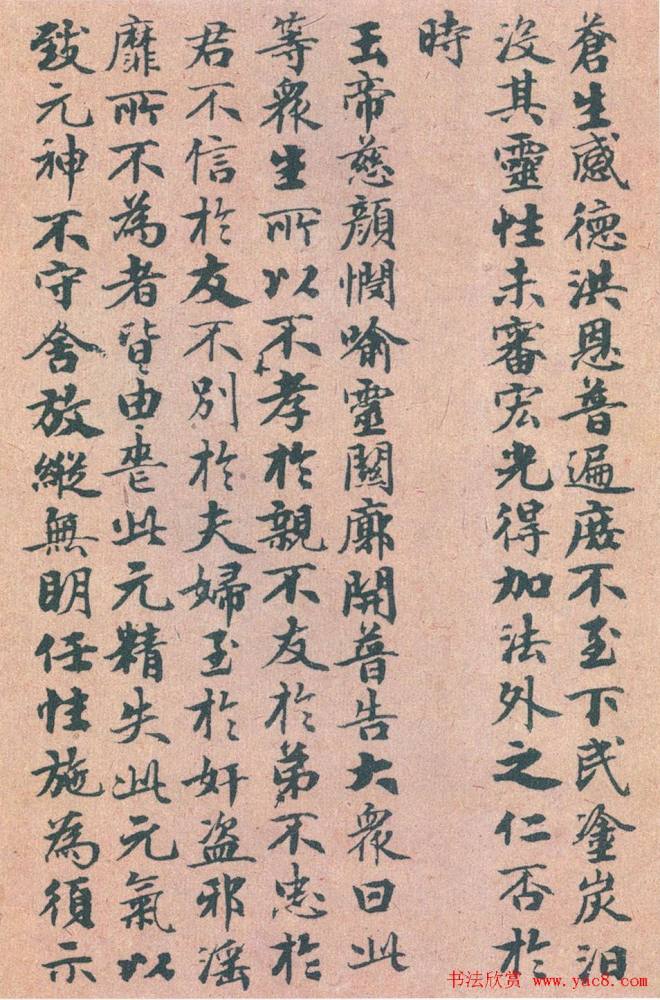 蒼生感德洪恩普遍庶不至下民塗炭汩
沒其靈性未審宏光得加法外之仁否於
時
玉帝慈顏憫喻靈關廓開普告大衆曰此
等衆生所以不孝於親不友於弟不忠於
君不信於友不別於夫婦至於奸盜邪淫
靡所不為者皆由喪此元精失此元氣以
致元神不守舍放縱無明任性施為須示
书法欣赏 www.yac8.com